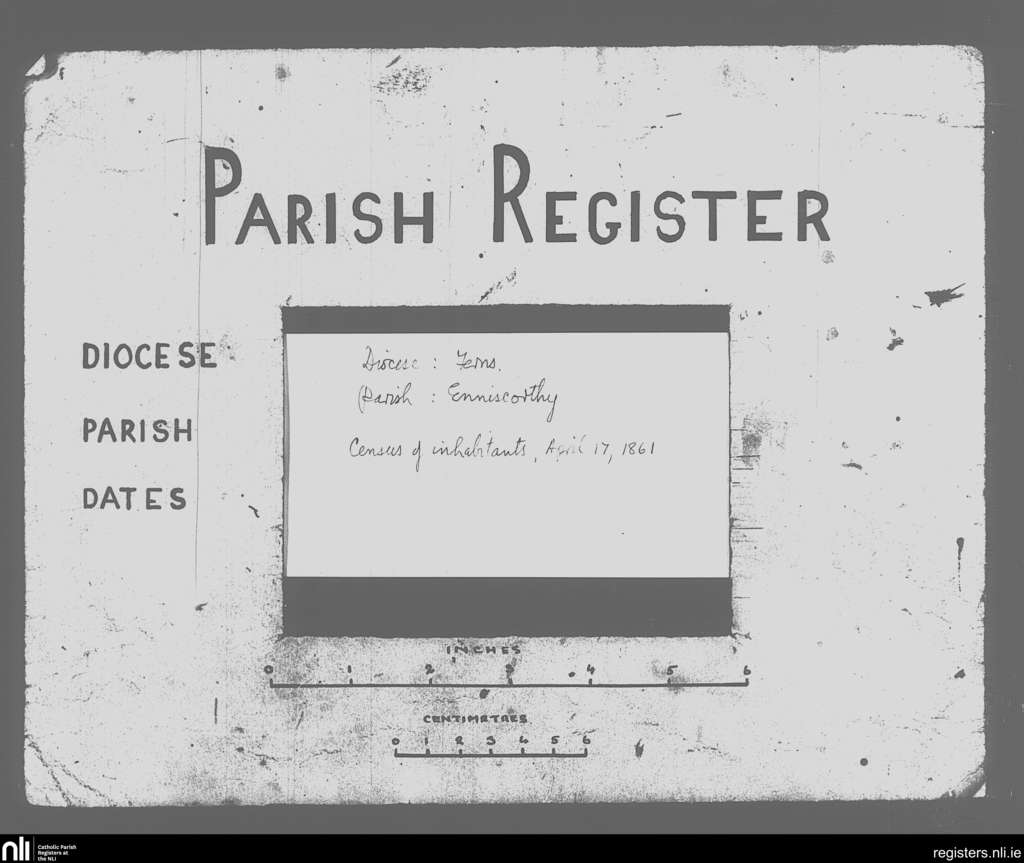 PARISH REGISTER
DIOCESE
PARISH
DATES
Diocese : Ferns.
Parish : Enniscorthy
Census of inhabitants, April 17, 1861
INCHES
0 1 2 3 4 5 6
CENTIMETRES
0 1 2 3 4 5 6
nli
Catholic Parish
Registers at
the NLI
registers.nli.ie